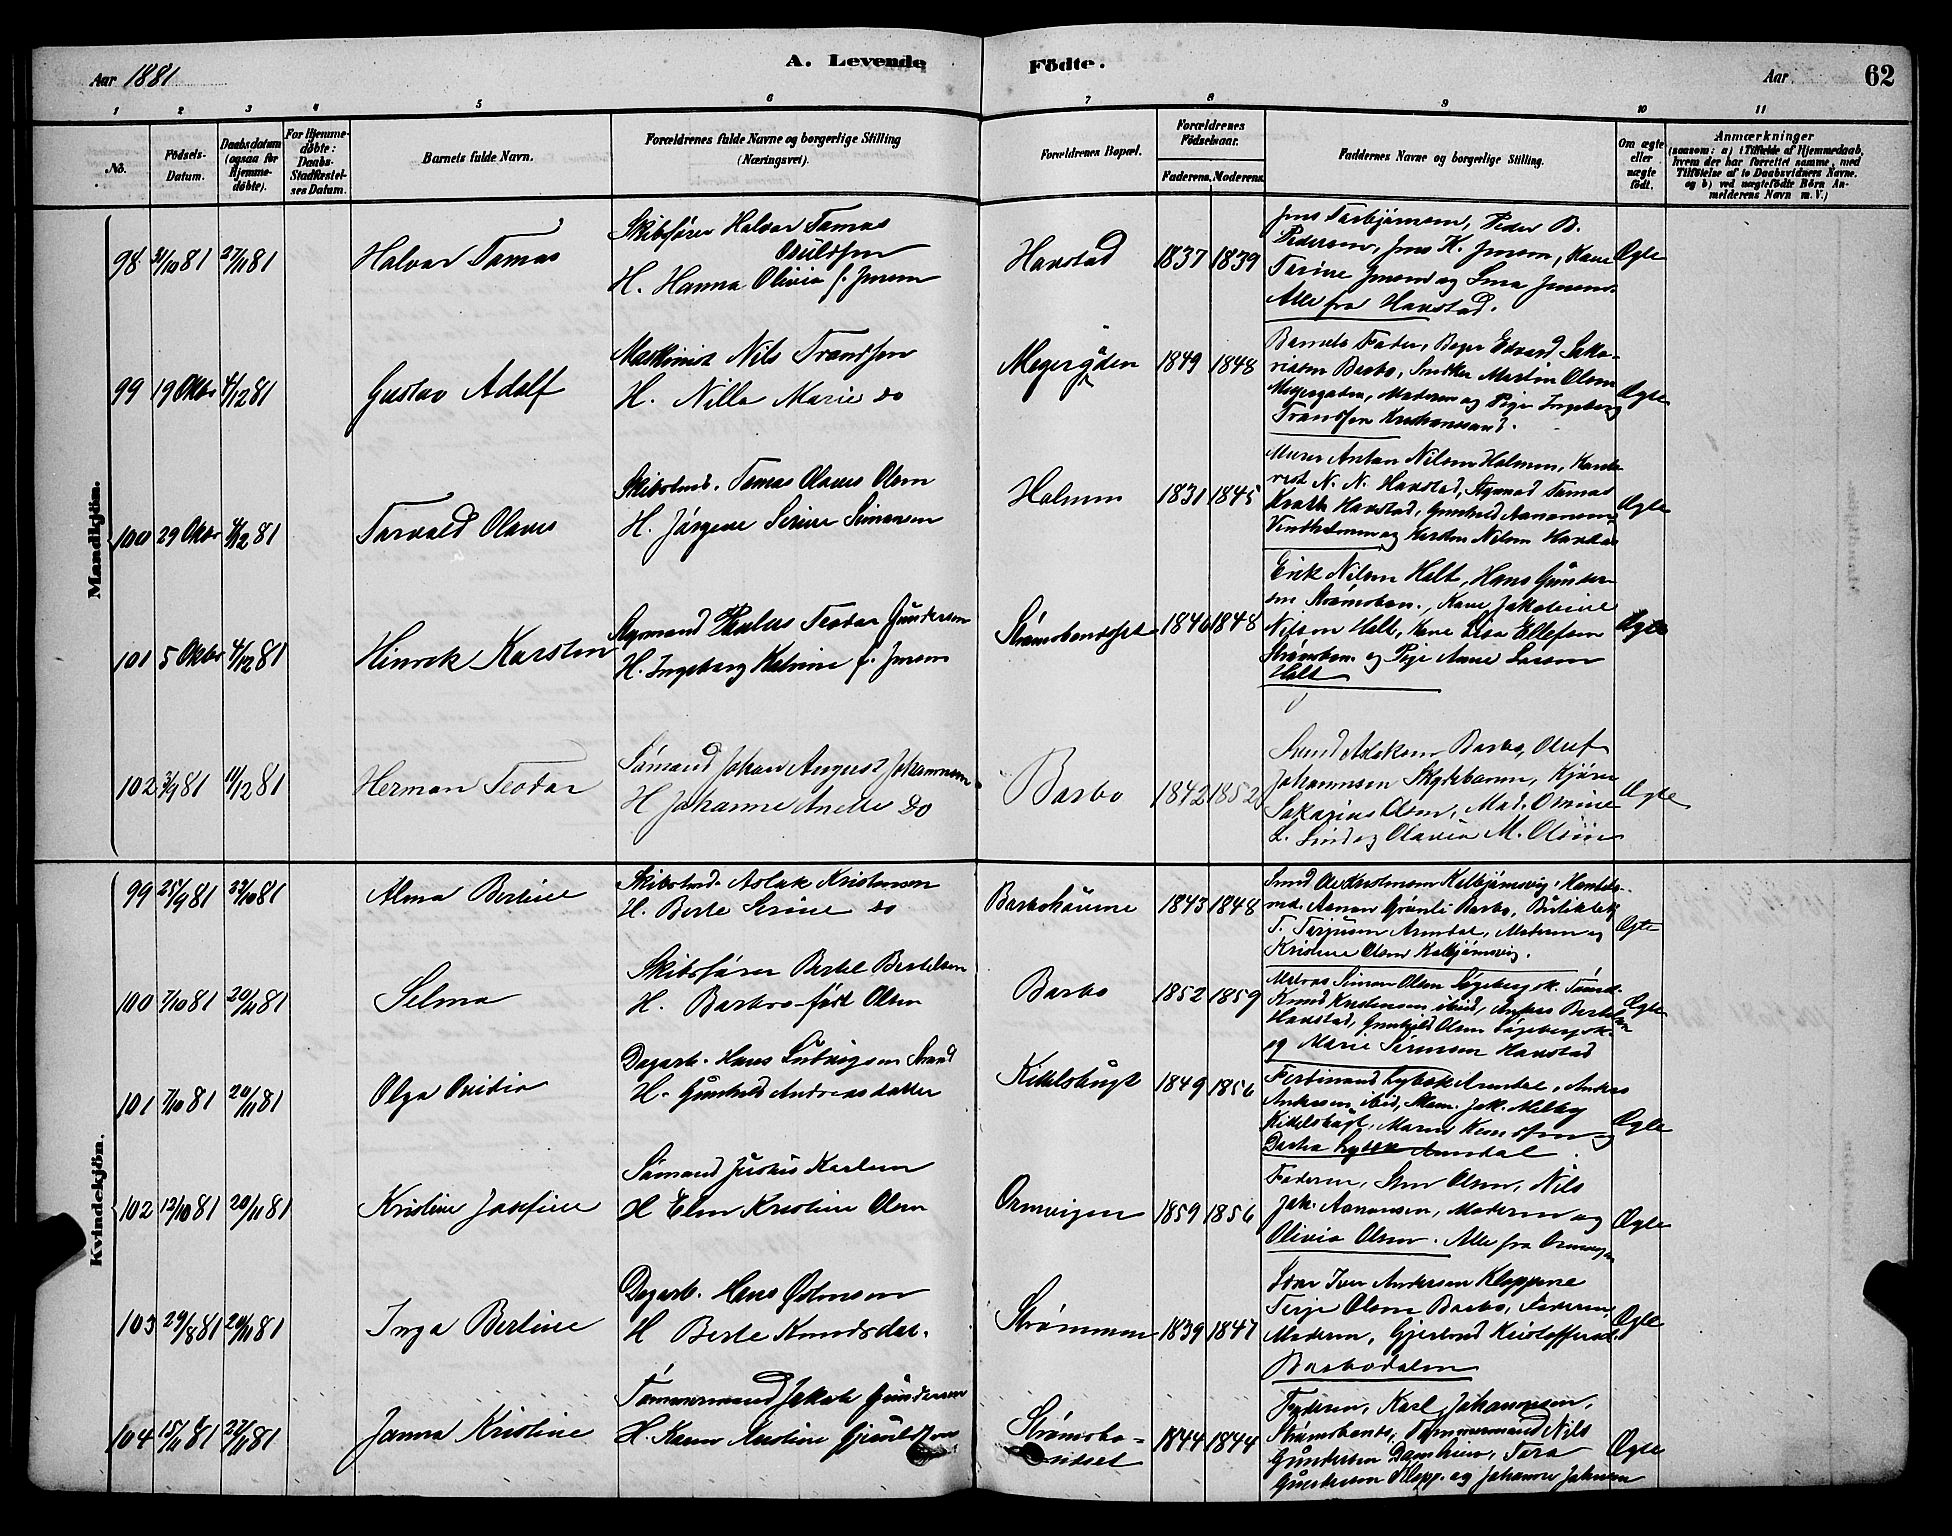 Aar 1881
A. Levende
Födte.
Aar
62
1 2 3 4 5 6 7 8 9 10 11
No.
Födsels-
Datum.
Daabsdatum
(ogsaa for
Hjemme-
döbte).
For Hjemme-
döbte:
Daabs-
Stadfæstel-
ses Datum.
Barnets fulde Navn.
Forældrenes fulde Navne og borgerlige Stilling
(Næringsvei).
Forældrenes Bopæl.
Forældrenes
Födselsaar.
Faderens. Moderens.
Faddernes Navne og borgerlige Stilling.
Om ægte
eller
uægte
födt.
Anmærkninger
(saasom: a) i Tilfælde af Hjemmedaab,
hvem der har forrettet samme, med
Tilföielse af to Daabsvidners Navne.
og b) ved uægtefödte Börn An-
melderens Navn m. V.)
Mandkjön.
98 31/10 81 27/11 81
Halvar Tomas
Skibsfører Halvor Tomas
H. Hanna Olivia f. Jensen
Havstad
1837 1839
Jens Torbjörnsen, Peder B.
Pedersen, Jens K. Jensen, Kone
Terine Jensen og
Alle fra Havstad.
Ægte
99 19 Oktbr 4/12 81
Gustav Adolf
Maskinist Nils Trondsen
H. Nilla Marie do
Meyergåden
1849 1848
Barnets Fader, Bager Edvard Saka-
riasen Barbo, Snedker Martin Olsen
Meyergaden, Moderen og Pige Ingeborg
Trondsen Kristianssand.
Ægte
100 29 Oktbr 4/12 81
Torvald Olaves
Skibstmd. Tomas Olaves Olsen
H. Jörgene Serine Simonsen
Holmen
1831 1845
Murer Anton Nilsen Holmen,
N. N. Havstad, Styrmd Tomas
Havstad, Gunhild Aanonsen
Vindholmen og Karsten Nilsen Havstad
Ægte
101 5 Oktbr 4/12 81
Hinrek Karsten
Styrmand Teodor Gundersen
H. Ingeborg Katrine f. Jensen
Strömsbuodset
1846 1848
Erik Nilsen Holt, Hans Gunder-
sen Strömsbon., Kone Jakobine
Nilsen Holt, Kone Elsa Ellefsen
Strömsbon. og Pige Anne Larsen
Holt
Ægte
102 3/9 81 11/12 81
Herman Teodor
Sömand Johan August Johannesen
H Johanne Anette do
Barbo
1842 1852
Barbo, Oluf
Johannesen Skydebanen,
Sakarias Olsen, Mad.
L. Lind og Olavia M. Olsen
Ægte
Kvindekjön.
99 25/9 81 23/10 81
Alma Bertine
Skibstmd. Aslak Kristensen
H. Berte Serine do
Barbohaugene
1843 1848
Smed Ole Kristensen Kolbjörnsvig, Handels-
md. Aanon Grönli Barbo,
T. Terjesen Arendal, Moderen og
Kristine Olsen Kolbjörnsvig.
Ægte
100 7/10 81 20/11 81
Selma
Skibsförer Bertel Bertelsen
H. Barbro född Olsen
Barbo
1852 1859
Matros Simon Olsen
Knud Knudsen ibid, Anders Bertelsen
Havstad, Gunhild Olsen
og Marie Sörensen Havstad
Ægte
101 7/10 81 20/11 81
Olga Ovidia
Dagarb. Hans Ludvigsen Strand
H. Gunhild Andreasdatter
Kittelsbugt
1849 1856
Ferdinand Lybek Arendal, Anders
Andersen ibid, Jak. Melby
Kittelsbugt, Maren Knudsen og
Dortea Lybek Arendal.
Ægte
102 12/10 81 20/11 81
Kristine Josefine
Sömand Justus Karlsen
H Elen Kristine Olsen
Ormvigen
1859 1856
Faderen, Olsen, Nils
Jak. Aanonsen, Moderen og
Olivia Olsen. Alle fra Ormvigen
Ægte
103 29/8 81 20/11 81
Inga Bertine
Dagarb. Hans Östensen
H Berte Knudsdat.
Strömmen
1839 1847
Iver Andersen Kloppene
Terje Olsen Barbo, Faderen,
Moderen, Gjertrud Kristoffersd.
Barbodalen
Ægte
104 15/11 81 27/11 81
Janna Kristine
Tömmermand Jakob Gundersen
H. Karen Kristine Gjeruldsen
Strömsbo-
udset
1844 1844
Faderen, Karl Johannesen,
Strömsbonds, Tömmermand Nils
Gundersen Tora
Gundersen Klopp. og Johanne Johnsen
Ægte